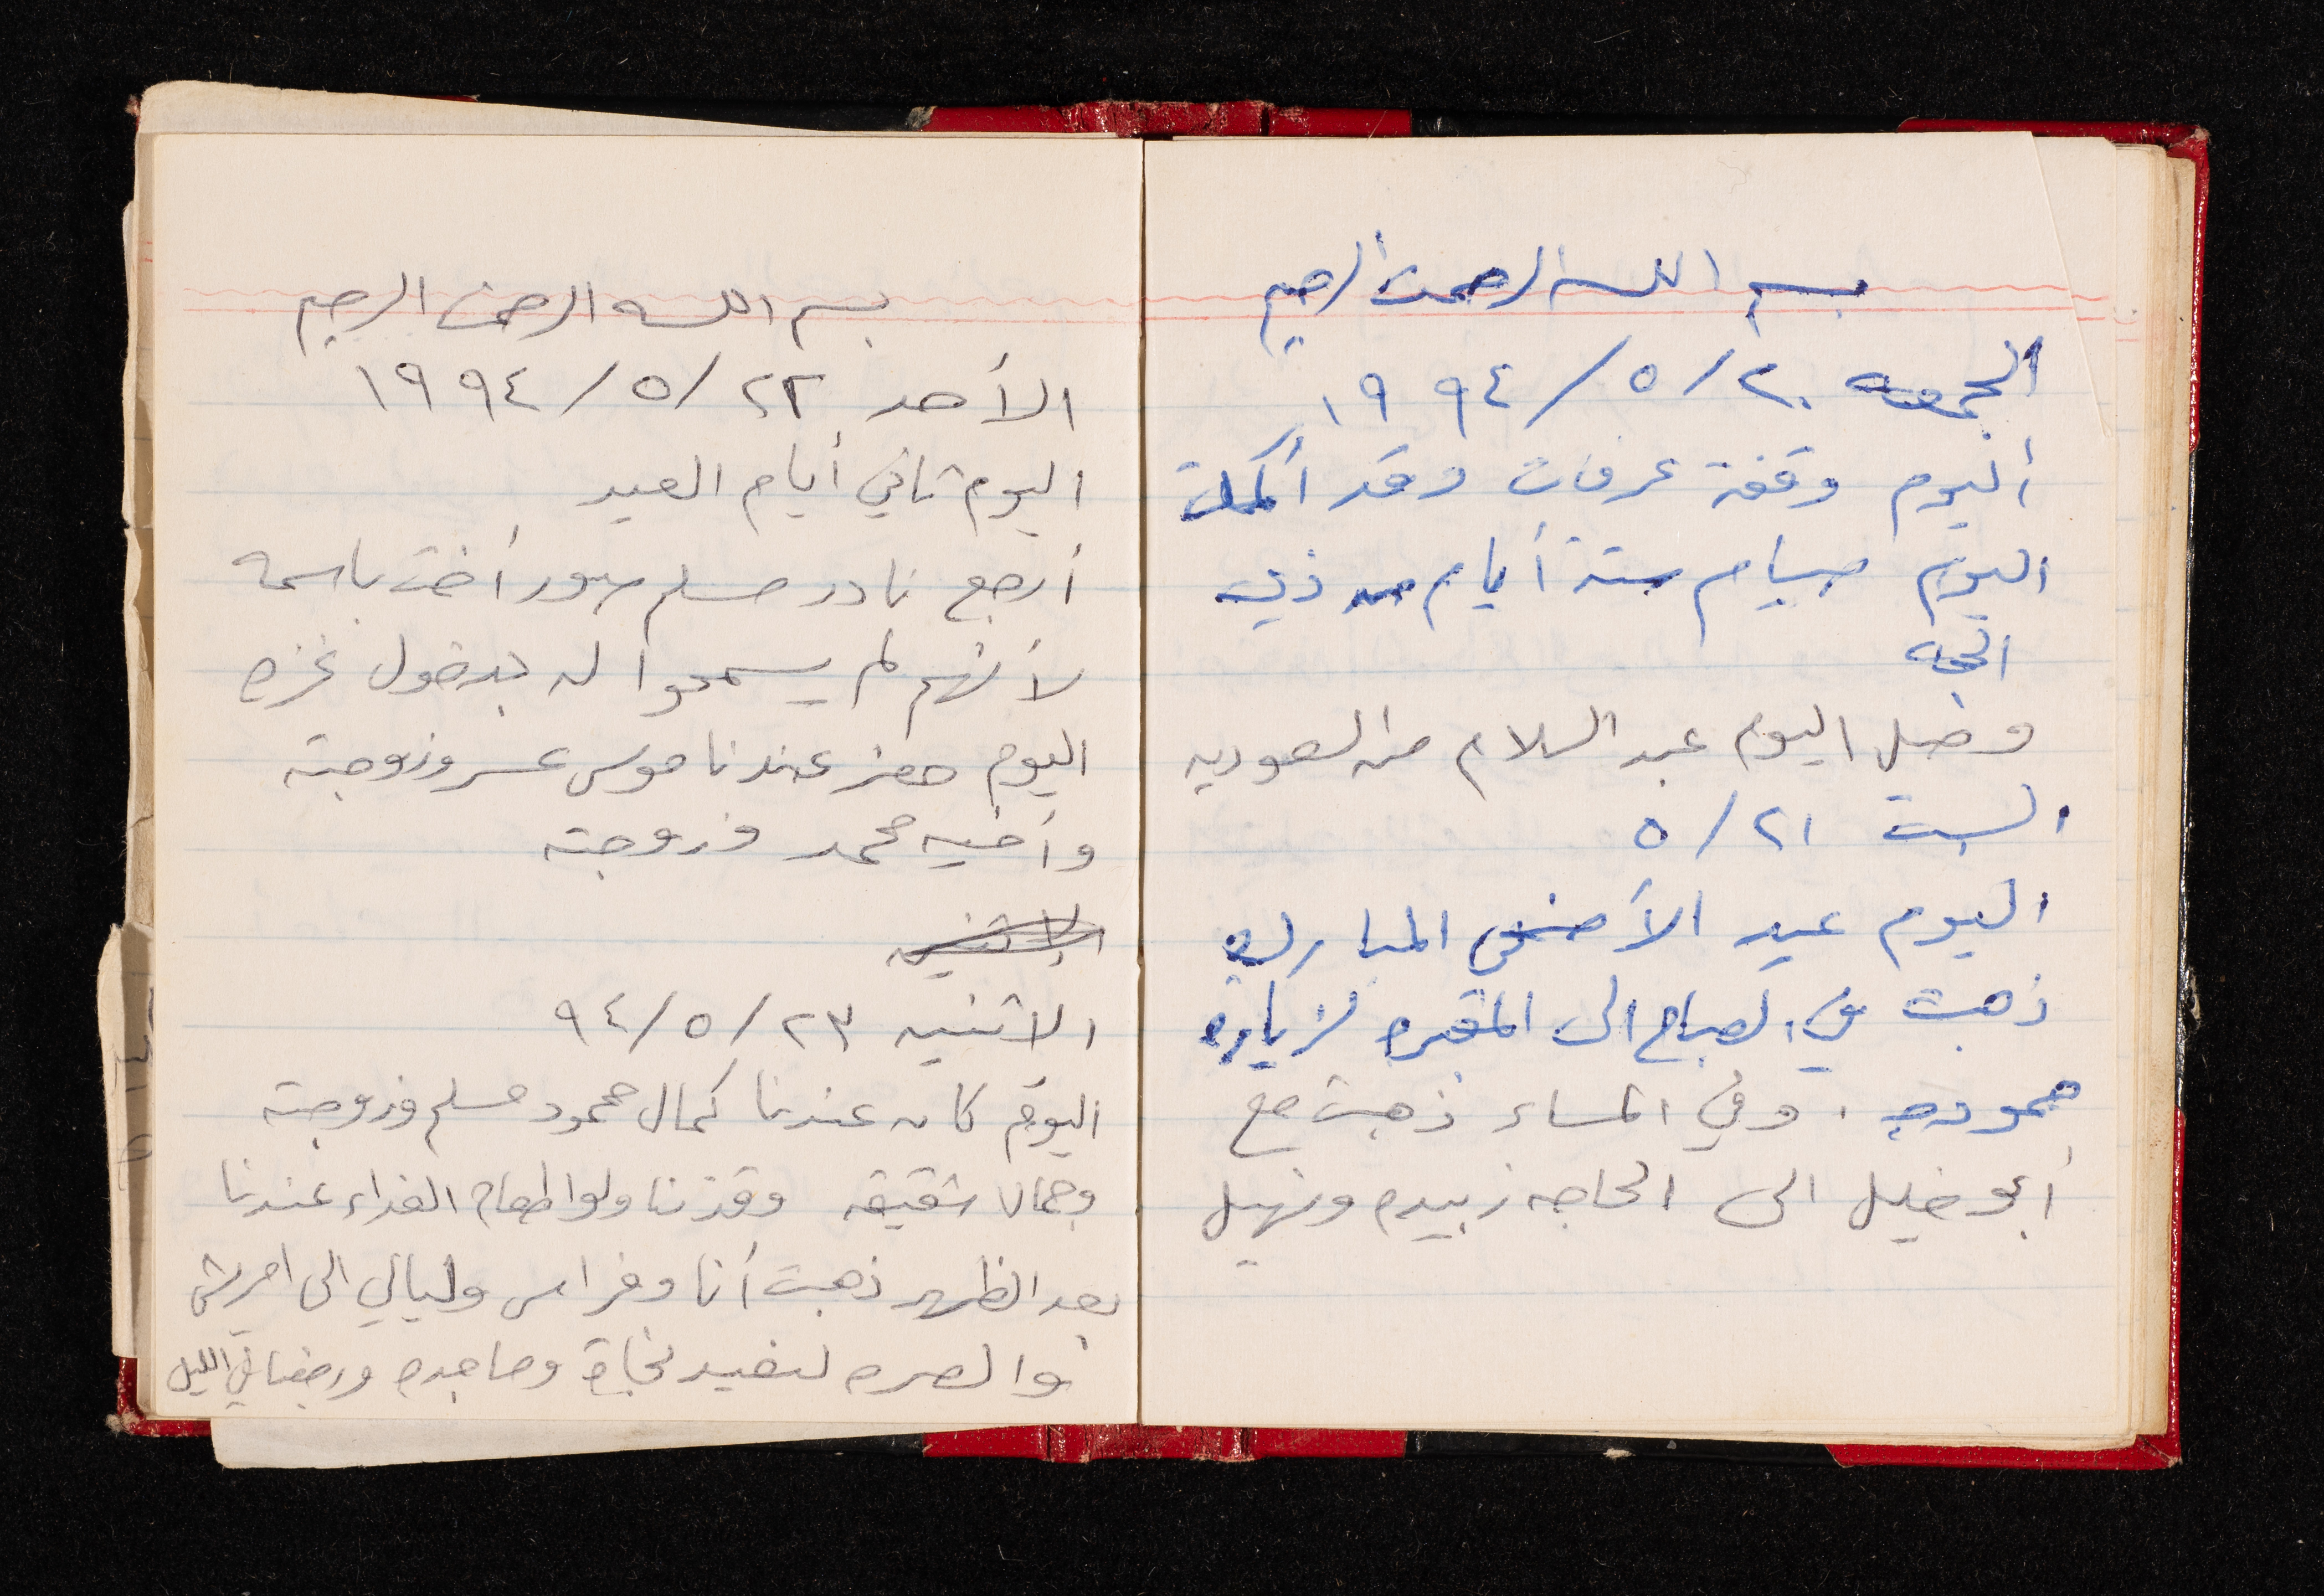 بسم الله الرحمن الرحيم
الجمعه ٢٠/٥/١٩٩٤
أليوم وقفة عرفات وقد أكملت
اليوم صيام ستة أيام من ذي
الحجه
وصل اليوم عبد السلام من السعوديه
السبت ٢١/٥
اليوم عيد الأضحى المبارك
ذهبت في الصباح الى المقبره لزياره
حموده. وفي المساء ذهبت مع
أبو خليل الى الحاجه زبيده ونهيل
بسم الله الرحمن الرحيم
الأحد ٢٢/٥/١٩٩٤
اليوم ثاني أيام العيد
أرجع نادر مسلم أخت باسمه
لأنهم لم يسمحوا له بدخول غزه
اليوم حضر عندنا موسى وزوجته
وأخيه محمد وزوجته
الاثنين
الاثنين ٢٣/٥/٩٤
اليوم كان عندنا كمال محمود مسلم وزوجته
وجمال شقيقه طعام الغداء عندنا
بعد الظهر ذهبت أنا وفراس وليالي الى امريش
والعبره نجاة وماجده ورجعنا في الليل